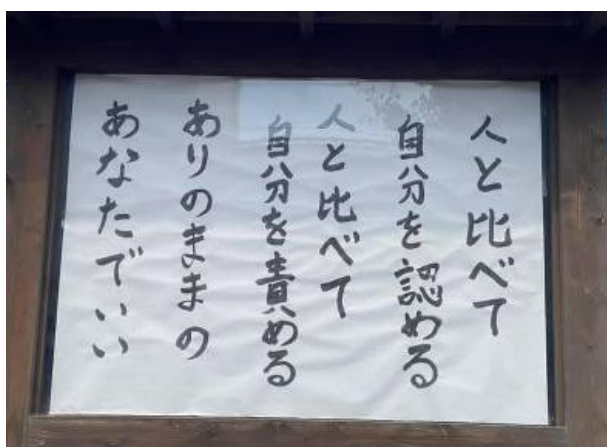 人と比べて
自分を認める
人と比べて
自分を責める
ありのままの
あなたでいい